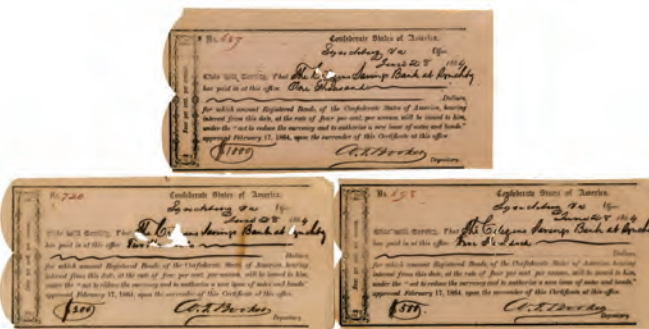 No. 657 Confederate States of America.
Lynchburg Va Office
June 28 1864
This will Certify, That The Citizens Savings Bank at Lynchb
has paid in at this office One Thousand
Dollars,
for which amount Registered Bonds, of the Confederate States of America, bearing
interest from this date, at the rate of four per cent. per annum, will be issued to him,
under the "act to reduce the currency and to authorize a new issue of notes and bonds,"
approved February 17, 1864, upon the surrender of this Certificate at this office.
$1000
Depositary.
Four per cent. per annum.
No. 720 Confederate States of America.
Lynchburg Va
June 28 1864
This will Certify, That The Citizens Savings Bank at Lynchb
has paid in at this office
Dollars,
for which amount Registered Bonds, of the Confederate States of America, bearing
interest from this date, at the rate of four per cent. per annum, will be issued to him,
under the "act to reduce the currency and to authorize a new issue of notes and bonds,"
approved February 17, 1864, upon the surrender of this Certificate at this office.
$500
Depositary.
No. 658 Confederate States of America.
Lynchburg Va
June 28 1864
This will Certify, That The Citizens Savings Bank at Lynchb
has paid in at this office Five Hundred
Dollars,
for which amount Registered Bonds, of the Confederate States of America, bearing
interest from this date, at the rate of four per cent. per annum, will be issued to him,
under the "act to reduce the currency and to authorize a new issue of notes and bonds,"
approved February 17, 1864, upon the surrender of this Certificate at this office.
$500
Depositary.